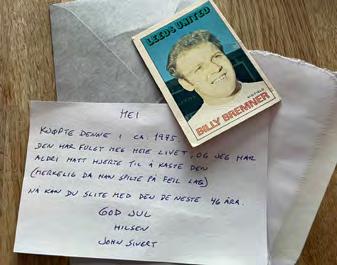 LEEDS UNITED
BILLY BREMNER
HEI
KJØPTE DENNE I CA. 1975
DEN HAR FULGT MEG HELE LIVET, OG JEG HAR
ALDRI HATT HJERTE TIL Å KASTE DEN
(MERKELIG DA HAN SPILTE PÅ FEIL LAG)
NÅ KAN DU SLITE MED DEN DE NESTE 46 ÅRA.
GOD JUL
HILSEN
JOHN SIVERT